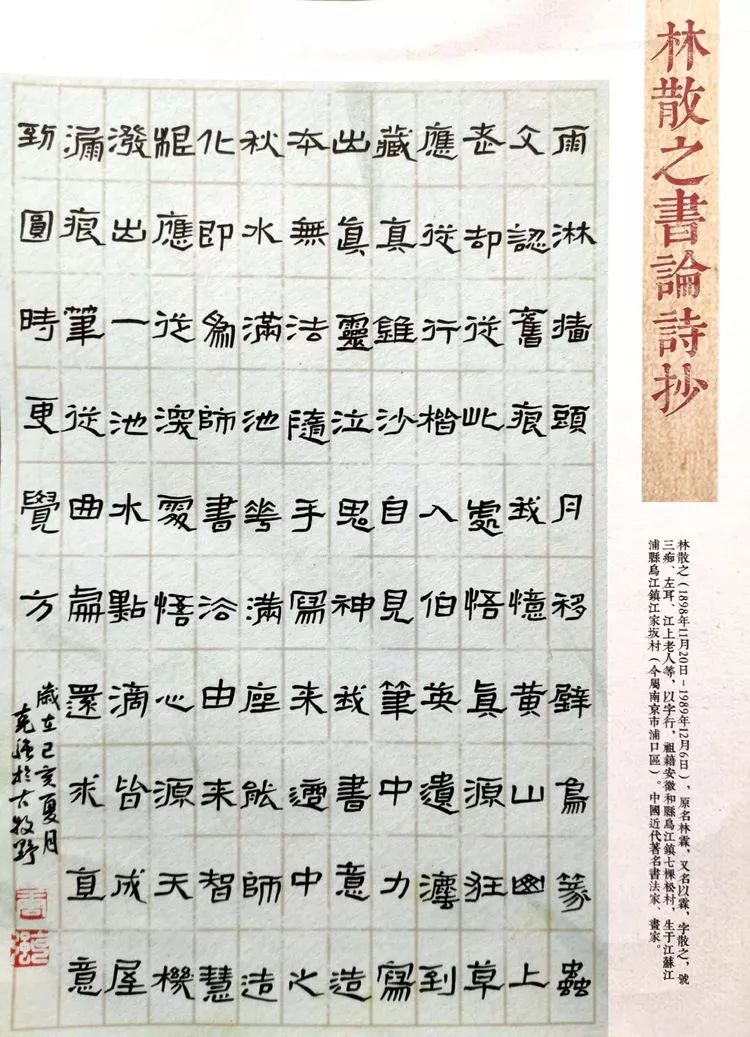 林散之書論詩抄
林散之（1898年11月20日-1989年12月6日），原名林霖，又名以霖，字散之，號
三痴、左耳、江上老人等，以字行，祖籍安徽和縣烏江鎮七棵松村，生于江蘇江
浦縣烏江鎮江家坂村（今屬南京市浦口區）。中國近代著名書法家、畫家。
雨淋墻頭月移壁鳥篆蟲
文認舊痕我憶黃山幽上
去却從此處悟真源狂草
應從行楷入伯英遺灋到
藏真錐沙自見筆中力寫
出真靈泣鬼神我書意造
本無法隨手寫来適中之
秋水滿池花滿座能師造
化即為師書法由来智慧
根應從深處悟心源天機
潑出一池水點滴皆成屋
漏痕筆從曲處還求直意
到圓時更覺方
歲在己亥夏月
於古牧野